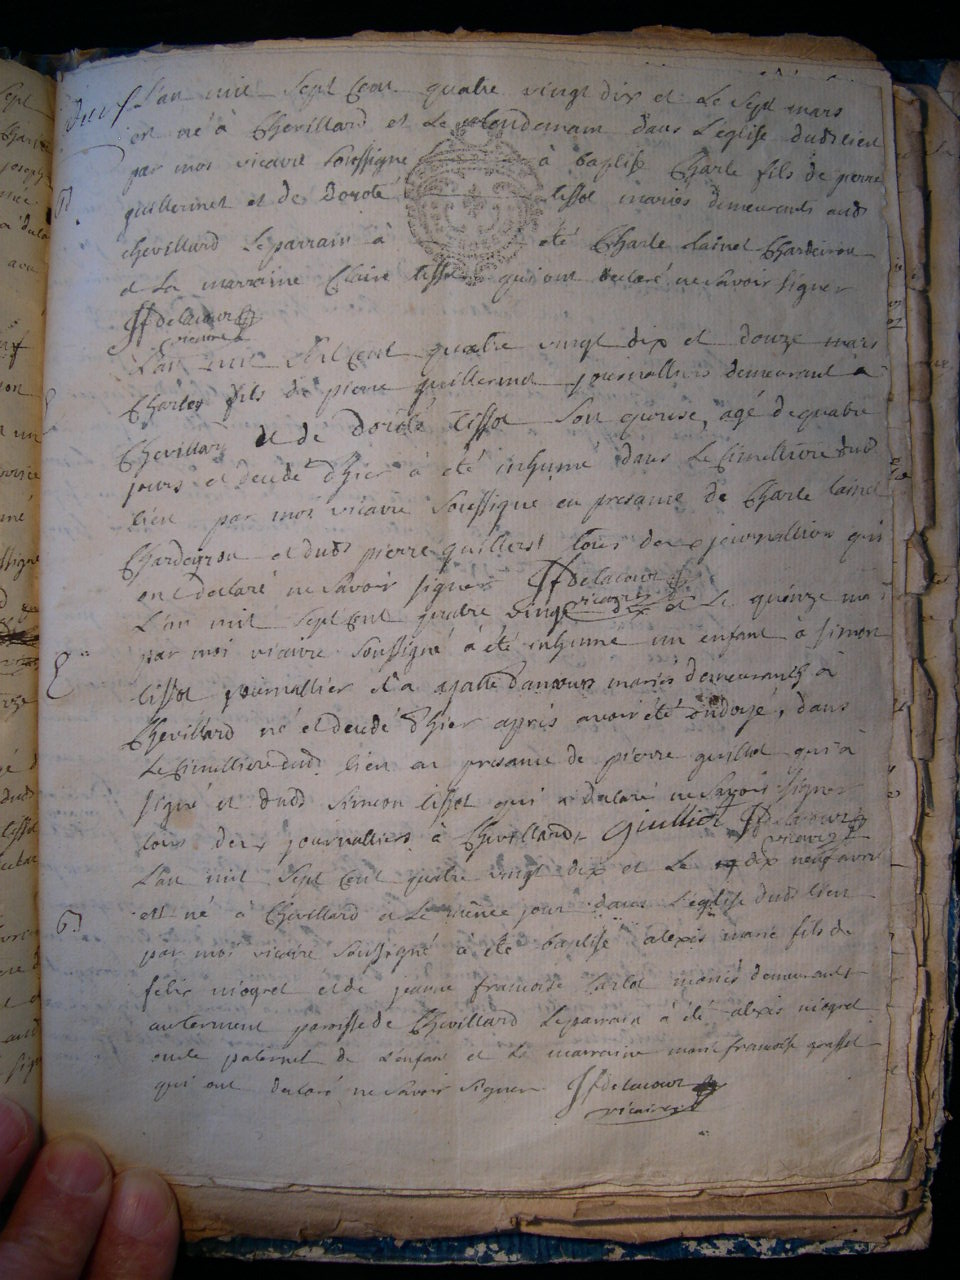 L'an mil sept Cent quatre vingt dix et le sept mars
est né à Chevillard et le Lendemain dans L'eglise dudt lieu
par moi vicaire soussigné à baptisé Charle fils de pierre
guillermet et de Doroté tissot mariés demeurants audt
chevillard Le parrain à été Charle Lainel Chardeiron
et La marraine Claire tissot qui ont declaré ne savoir signer
Jf delacour
vicaire
L'an mil sept Cent quatre vingt dix et douze mars
Charles fils de pierre guillermet journallier demeurant à
Chevillard et de Doroté tissot son epouse, agé de quatre
jours et decedé d'hier à été inhumé dans Le Cimettiere dud
lieu par moi vicaire soussigné en presance de Charle Lainel
Chardeyron et dudt pierre tous deux journallier qui
ont declaré ne savoir signer Jf delacour
vicaire
L'an mil sept Cent quatre vingt dix et Le quenze
par moi vicaire soussigné à été inhumé un enfant à simon
tissot journallier et à agatte mariés demeurants à
Chevillard né et decedé d'hier appris avoir été ondoyé, dans
Le Cimettiere dudt lieu en presance de pierre guillot qui à
signé et dudt simon tissot qui a declaré ne savoir signer
tous deux journalliers à Chevillard, Jf delacour
vicaire
L'an mil sept Cent quatre vingt dix et Le dix neuf avril
est né à Chevillard et Le même jour dans L'eglise dudt lieu
par moi vicaire soussigné à été baptisé alexis marie fils de
felix niogret et de jeanne francoise mariés demeurants
parroisse de Chevillard Le parrain à été alexis niogret
oncle paternel de L'enfant et La marraine marie francoise
qui ont declaré ne savoir signer Jf delacour
vicaire
6.